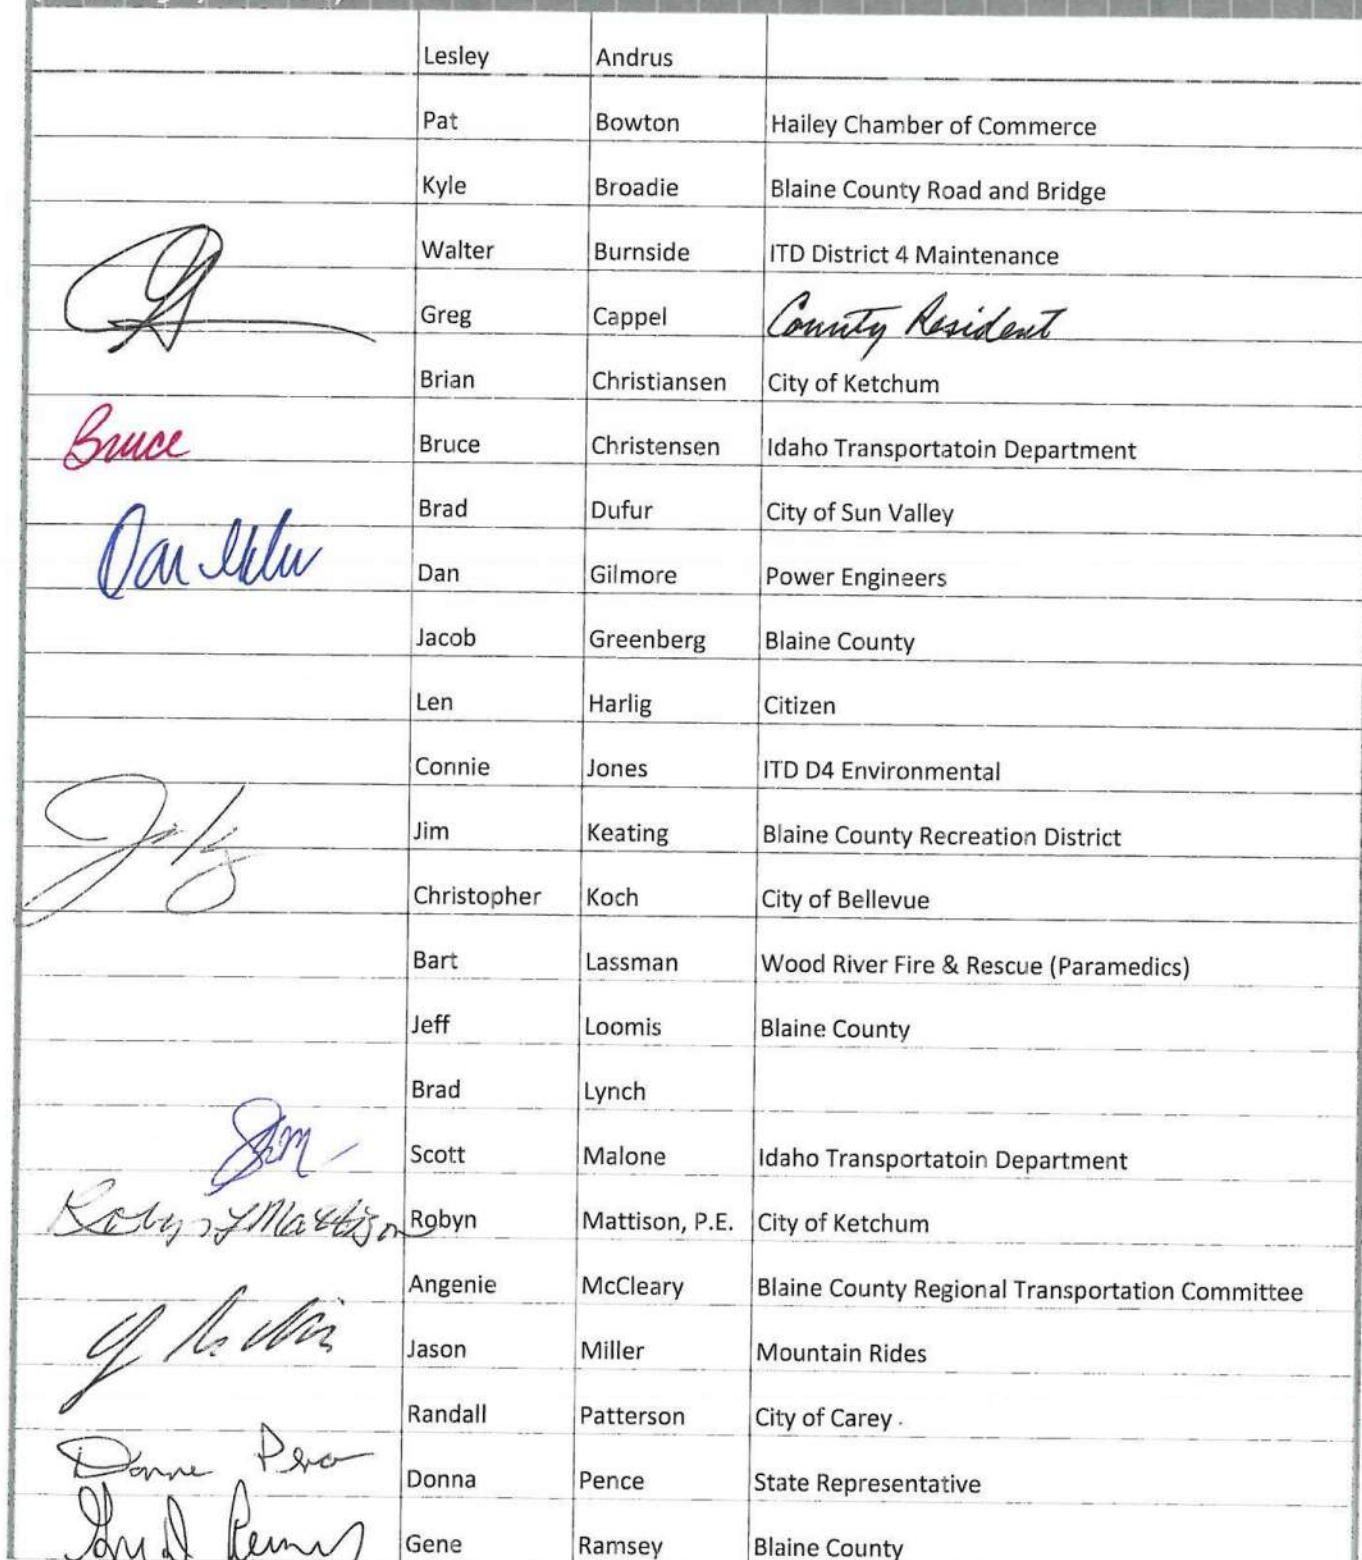 Lesley Andrus
Pat Bowton Hailey Chamber of Commerce
Kyle Broadie Blaine County Road and Bridge
Walter Burnside ITD District 4 Maintenance
Greg Cappel County Resident
Brian Christiansen City of Ketchum
Bruce Bruce Christensen Idaho Transportatoin Department
Brad Dufur City of Sun Valley
Dan Dan Gilmore Power Engineers
Jacob Greenberg Blaine County
Len Harlig Citizen
Connie Jones ITD D4 Environmental
Jim Keating Blaine County Recreation District
Christopher Koch City of Bellevue
Bart Lassman Wood River Fire & Rescue (Paramedics)
Jeff Loomis Blaine County
Brad Lynch
Scott Malone Idaho Transportatoin Department
Robyn L Mattison Robyn Mattison, P.E. City of Ketchum
Angenie McCleary Blaine County Regional Transportation Committee
Jason Miller Mountain Rides
Randall Patterson City of Carey
Donna Pence Donna Pence State Representative
Gene Ramsey Blaine County